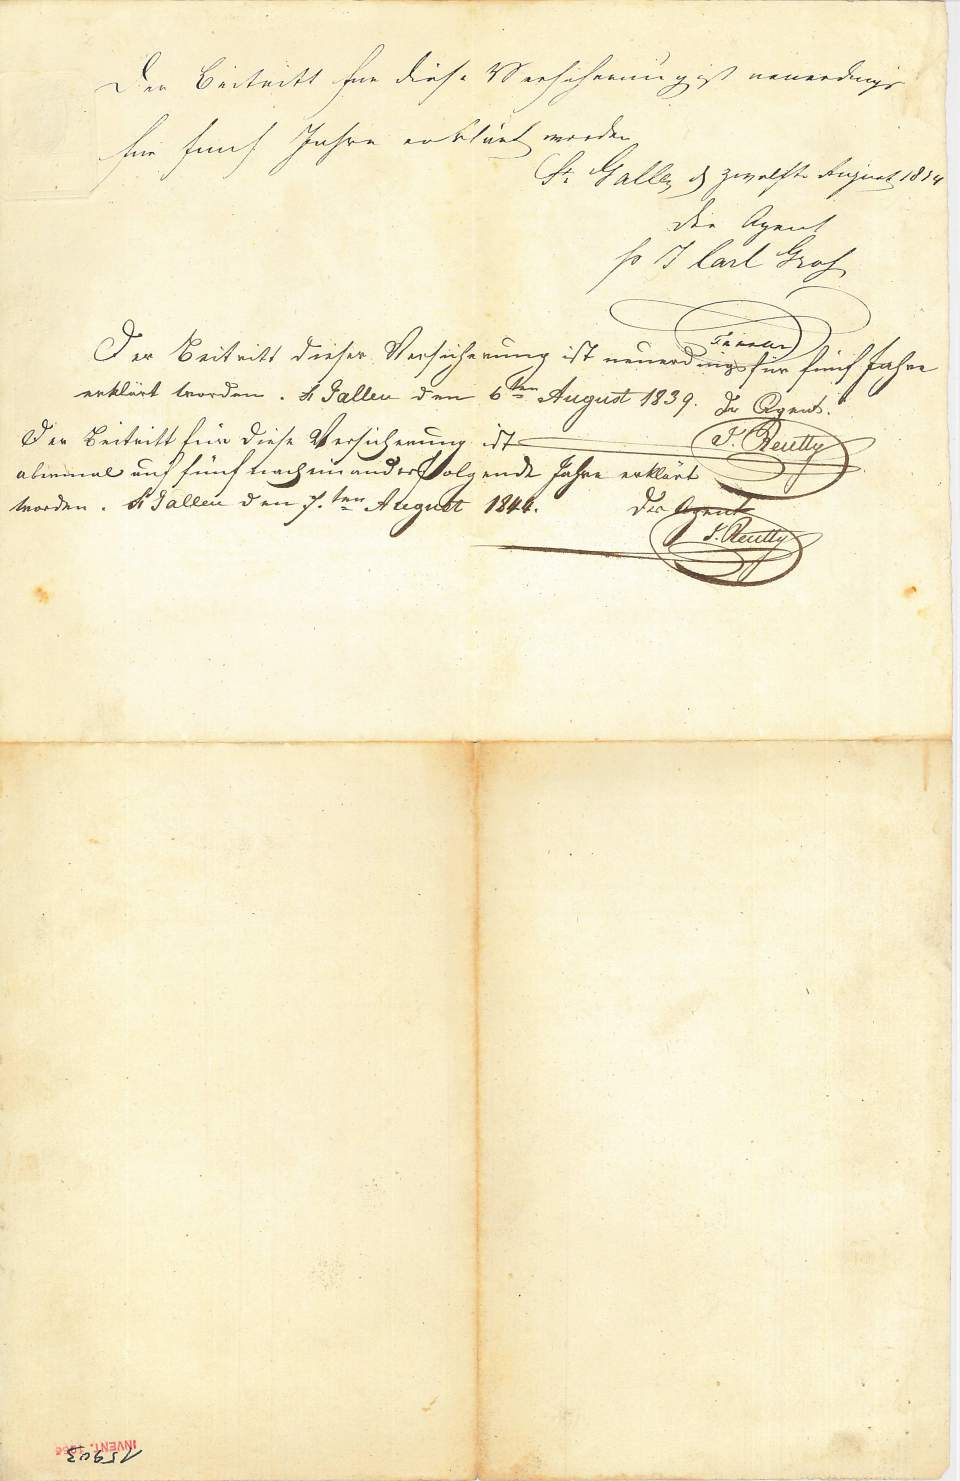 Der Beitritt für diese Versicherung ist neuerdings
für fünf Jahre erklärt worden
St. Gallen d zwölfte August 1834
der Agent
pr J Carl Grob
Der Beitritt dieser Versicherung ist neuerdings für fünf Jahre
erklärt worden. St Gallen den 6ten August 1839. Der Agent.
J. Reutty
Der Beitritt für diese Versicherung ist
abermal auf fünf nacheinanderfolgende Jahre erklärt
worden. St Gallen den 7.ten August 1844. Der Agent
J. Reutty
INVENT. 1966
15903